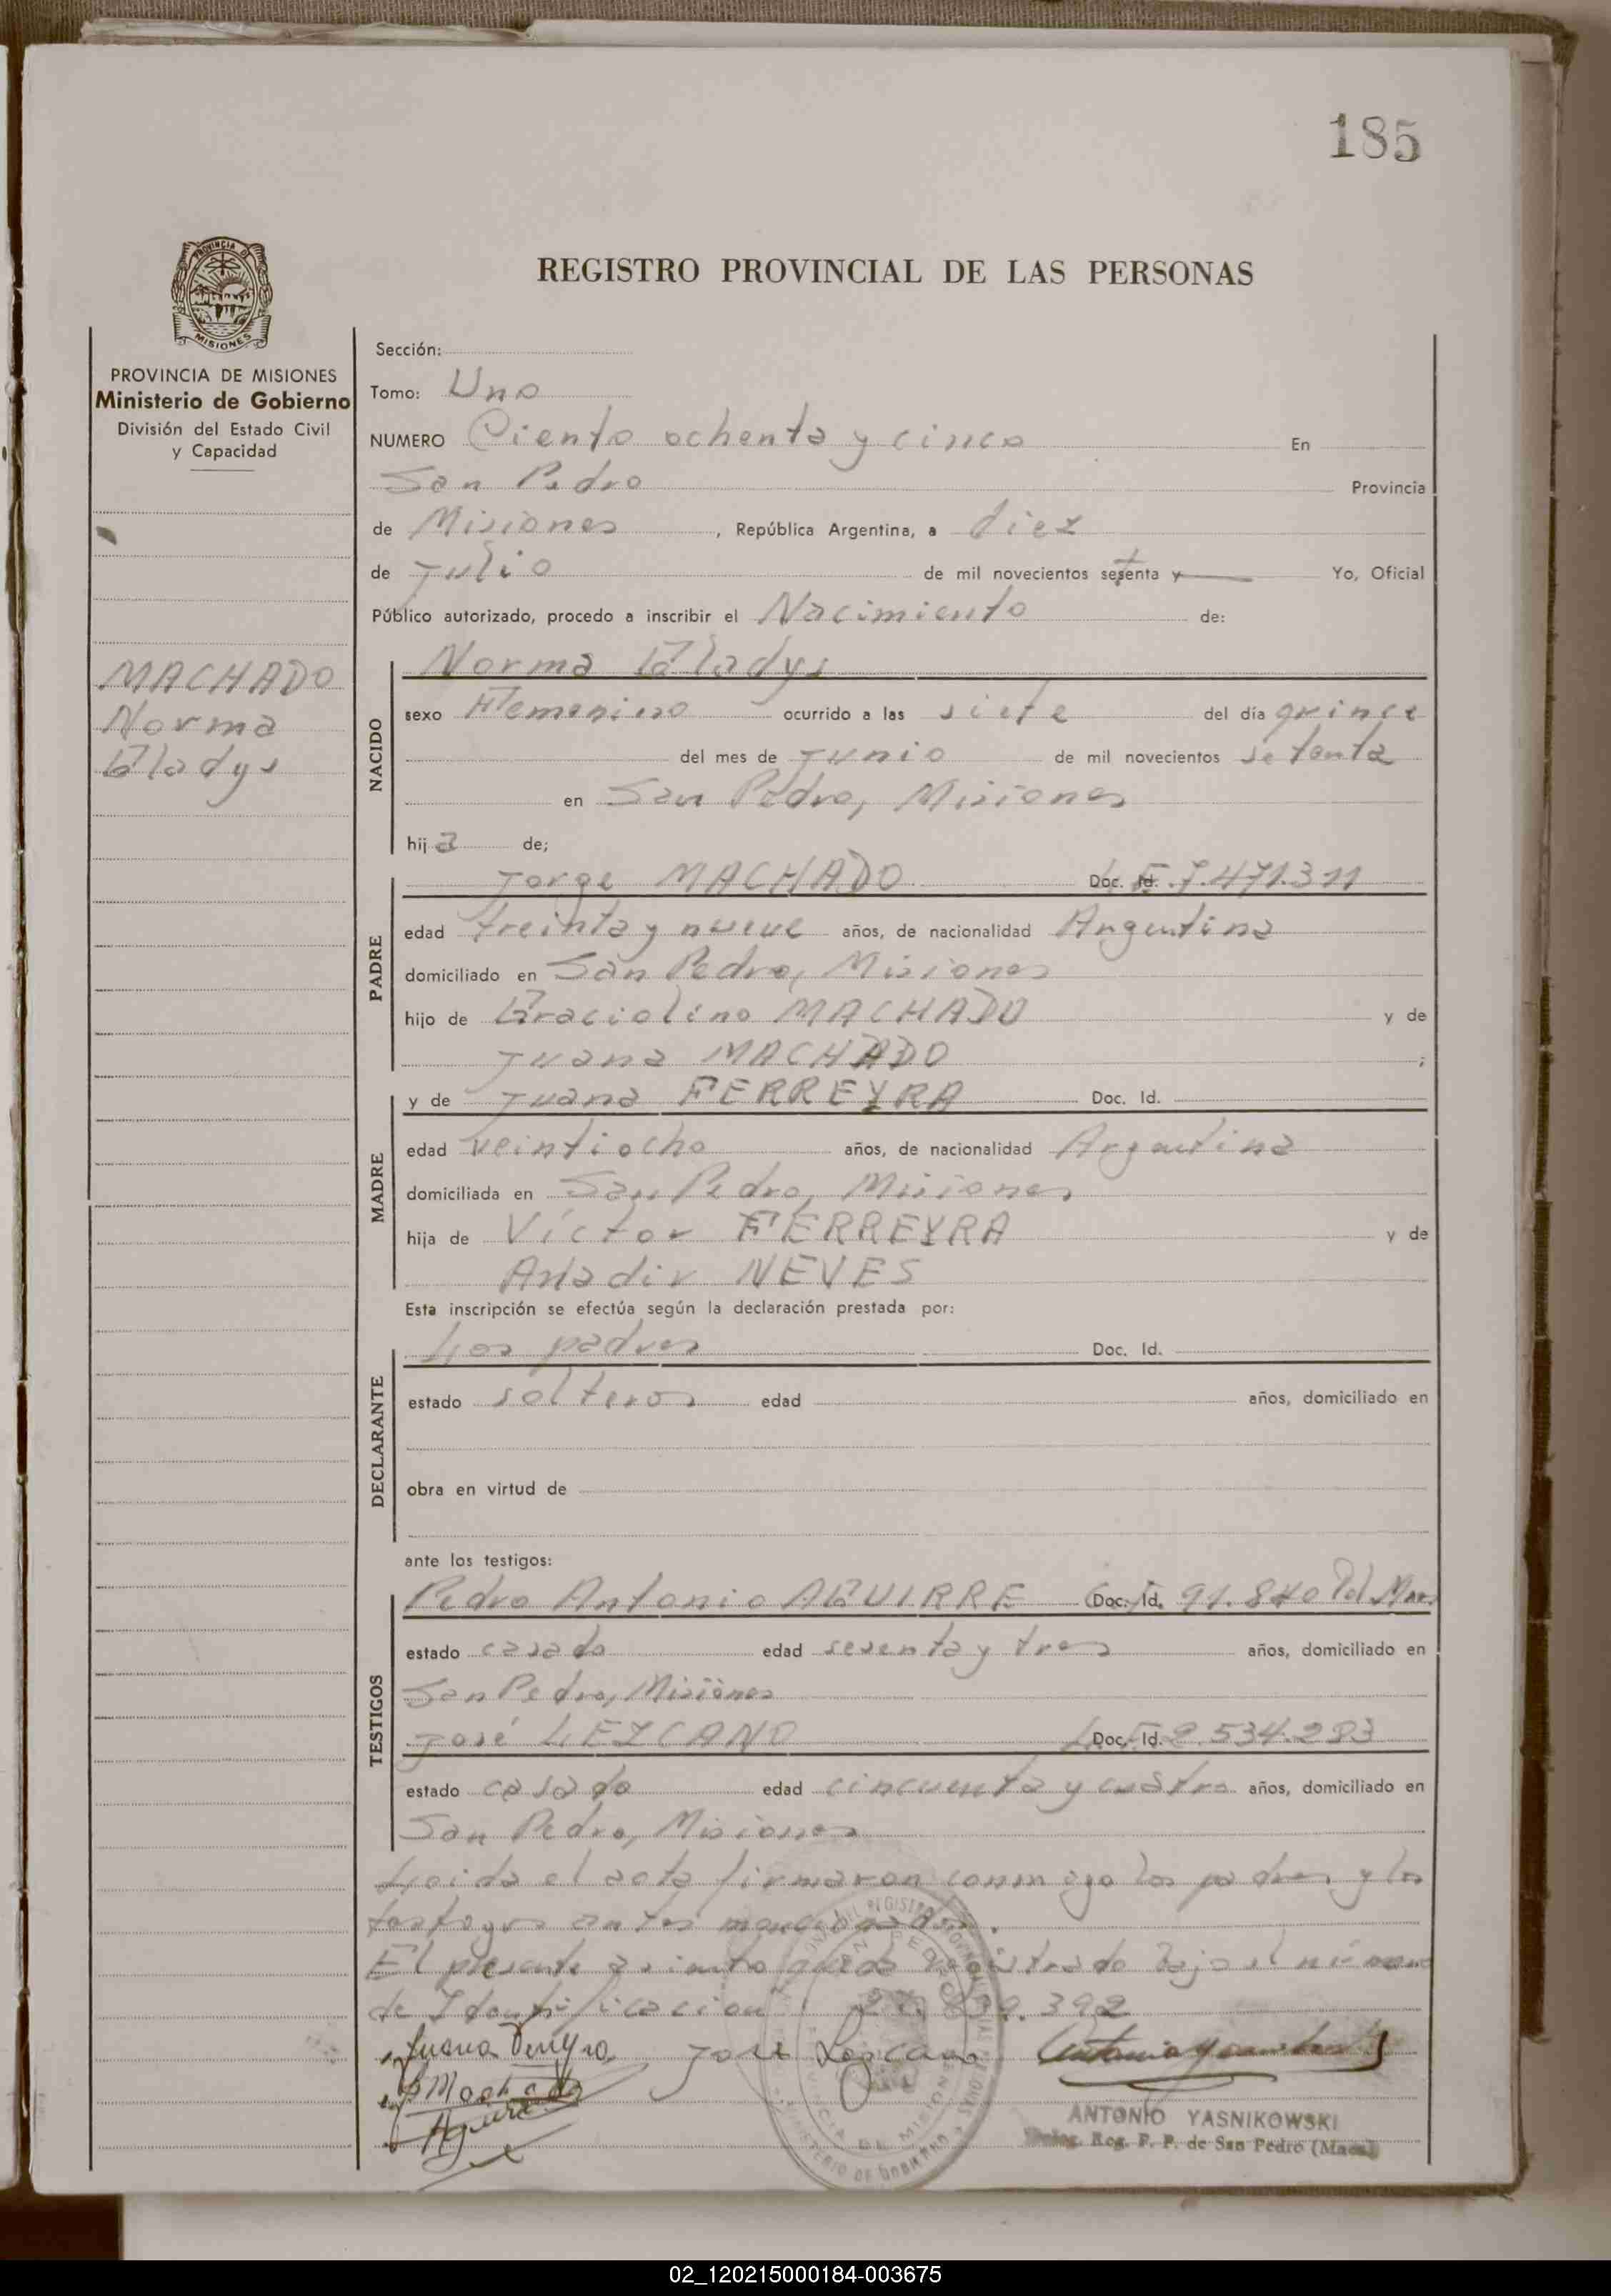 185
PROVINCIA DE MISIONES
PROVINCIA DE MISIONES
Ministerio de Gobierno
División del Estado Civil
y Capacidad
MACHADO
Norma
Gladys
REGISTRO PROVINCIAL DE LAS PERSONAS
Sección:
Tomo: Uno
NUMERO Ciento ochenta y cinco En
San Pedro Provincia
de Misiones, República Argentina, a diez
de Julio de mil novecientos setenta y Yo, Oficial
Público autorizado, procedo a inscribir el Nacimiento de:
NACIDO
Norma Gladys
sexo Femenino ocurrido a las siete del día quince
del mes de Junio de mil novecientos setenta
en San Pedro, Misiones
hija de;
PADRE
Jorge MACHADO Doc. Id. 7.471.311
edad treinta y nueve años, de nacionalidad Argentina
domiciliado en San Pedro, Misiones
hijo de Graciolino MACHADO y de
Juana MACHADO ;
MADRE
y de Juana FERREYRA Doc. Id.
edad veintiocho años, de nacionalidad Argentina
domiciliada en San Pedro, Misiones
hija de Víctor FERREYRA y de
NEVES
Esta inscripción se efectúa según la declaración prestada por:
DECLARANTE
Los padres Doc. Id.
estado solteros edad años, domiciliado en
obra en virtud de
ante los testigos:
TESTIGOS
Pedro Antonio AGUIRRE Doc. Id. 91.840 Pol. Mnes
estado casado edad sesenta y tres años, domiciliado en
San Pedro, Misiones
José LEZCANO Doc. Id. 2.534.283
estado casado edad cincuenta y cuatro años, domiciliado en
San Pedro, Misiones
Leida el acta firmaron conmigo los padres y los
testigos antes mencionados.
El presente asiento queda registrado bajo el número
de Identificacion
Juana
José Lezcano
Machado
Aguirre
ANTONIO YASNIKOWSKI
Reg. P. P. de San Pedro (Mnes)
02_120215000184-003675